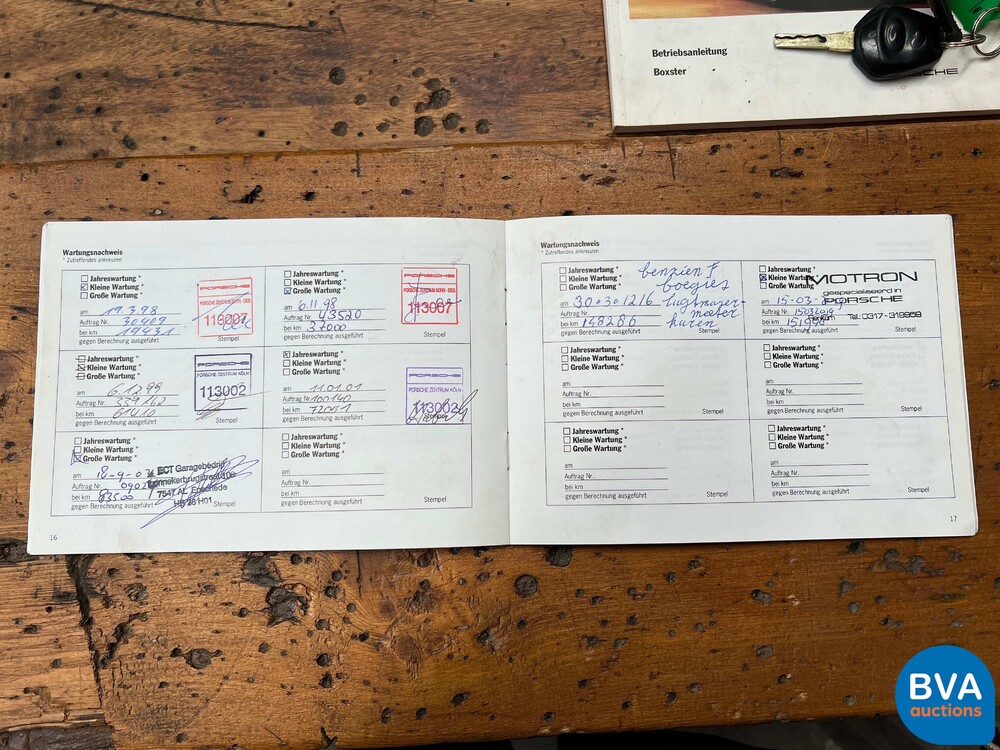 Betriebsanleitung
Boxster
Wartungsnachweis
* Zutreffendes ankreuzen
Jahreswartung *
Kleine Wartung *
Große Wartung *
am 19.3.98
Auftrag Nr. 30409
bei km 19431
gegen Berechnung ausgeführt
Stempel
PORSCHE
PORSCHE ZENTRUM BONN
113007
Jahreswartung *
Kleine Wartung *
Große Wartung *
am 6.11.98
Auftrag Nr. 43520
bei km 37000
gegen Berechnung ausgeführt
Stempel
PORSCHE
PORSCHE ZENTRUM BONN
113007
Jahreswartung *
Kleine Wartung *
Große Wartung *
am 6.12.99
Auftrag Nr. 339162
bei km 61410
gegen Berechnung ausgeführt
Stempel
PORSCHE
PORSCHE ZENTRUM KÖLN
113002
Jahreswartung *
Kleine Wartung *
Große Wartung *
am 11.01.01
Auftrag Nr. 100140
bei km 72051
gegen Berechnung ausgeführt
Stempel
PORSCHE
PORSCHE ZENTRUM KÖLN
113002
Jahreswartung *
Kleine Wartung *
Große Wartung *
am 18-9-0
Auftrag Nr. 0902
bei km 83500
gegen Berechnung ausgeführt
Stempel
ECT Garagebedrijf
7547 AL Enschede
Jahreswartung *
Kleine Wartung *
Große Wartung *
am
Auftrag Nr.
bei km
gegen Berechnung ausgeführt
Stempel
16
Wartungsnachweis
* Zutreffendes ankreuzen
Jahreswartung *
Kleine Wartung *
Große Wartung *
am 30-3-12/6
Auftrag Nr.
bei km 148286
gegen Berechnung ausgeführt
Stempel
benzien F
boegies
Jahreswartung *
Kleine Wartung
Große Wartung
am 15-03-
Auftrag Nr. 15032019
bei km
gegen Berechnung ausgeführt
Stempel
MOTRON
gespecialiseerd in
PORSCHE
Tel: 0317-319959
Jahreswartung *
Kleine Wartung *
Große Wartung *
am
Auftrag Nr.
bei km
gegen Berechnung ausgeführt
Stempel
Jahreswartung *
Kleine Wartung *
Große Wartung *
am
Auftrag Nr.
bei km
gegen Berechnung ausgeführt
Stempel
Jahreswartung *
Kleine Wartung *
Große Wartung *
am
Auftrag Nr.
bei km
gegen Berechnung ausgeführt
Stempel
Jahreswartung *
Kleine Wartung *
Große Wartung *
am
Auftrag Nr.
bei km
gegen Berechnung ausgeführt
Stempel
17
BVA
auctions